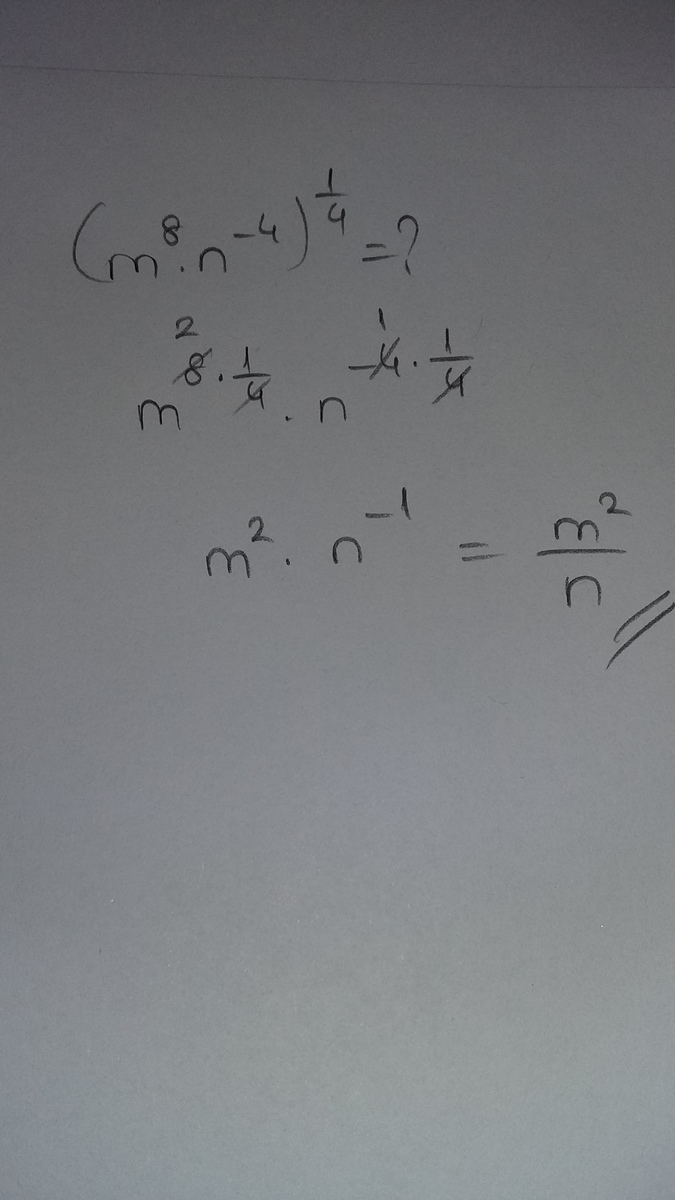 (m⁸.n⁻⁴)^(1/4) =?
m^(8.1/4) . n^(-4.1/4) 2 1
m² . n⁻¹ = m²/n //